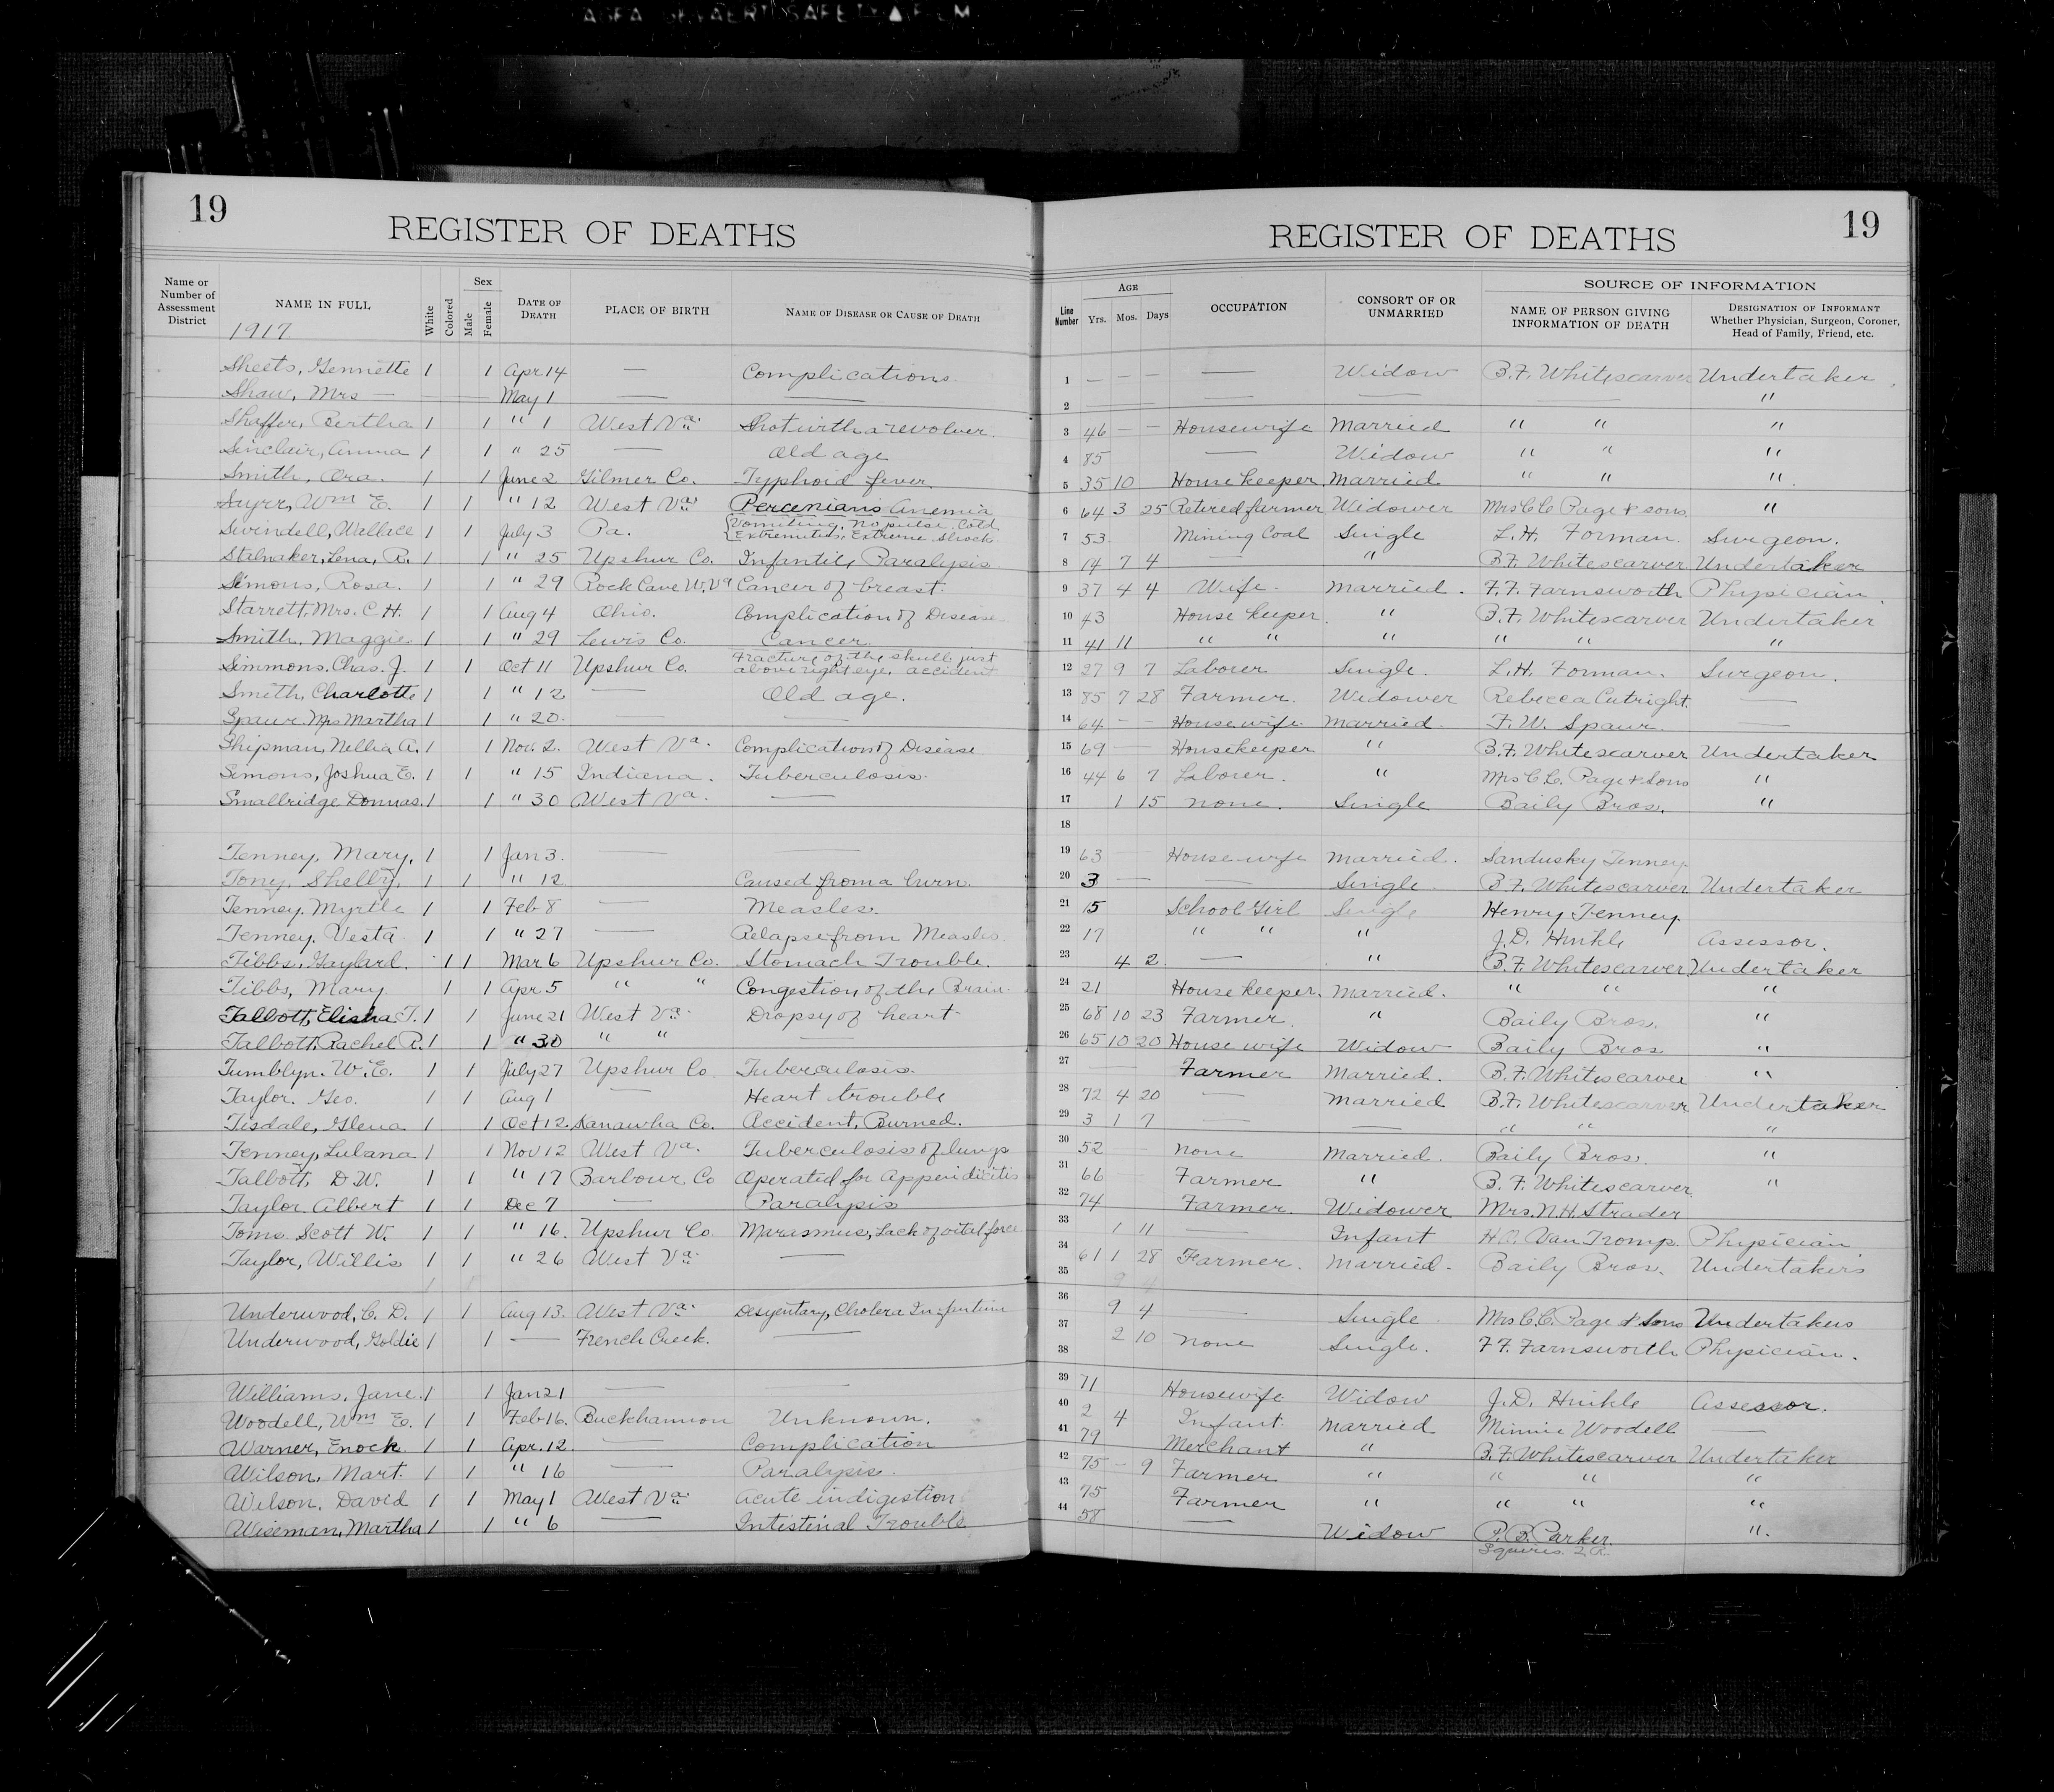 19
REGISTER OF DEATHS
Name or Number of Assessment District | NAME IN FULL | White | Colored | Sex | Male | Female | DATE OF DEATH | PLACE OF BIRTH | NAME OF DISEASE OR CAUSE OF DEATH
1917
Sheets, Gennette 1 1 Apr 14 — Complications.
Shaw, Mrs — — — May 1 — —
Shaffer, Bertha 1 1 " 1 West Va. Shot with a revolver.
Sinclair, Anna 1 1 " 25 — Old age
Smith, Ora. 1 1 June 2 Gilmer Co. Typhoid fever.
Wm E. 1 1 " 12 West Va. Percenians Anemia
Swindell, Wallace 1 1 July 3 Pa. {Vomiting, No pulse, Cold Extremities, Extreme Shock
Stalnaker, Lena, R. 1 1 " 25 Upshur Co. Infantile Paralysis
Simons, Rosa. 1 1 " 29 Rock Cave W. Va Cancer of breast.
Starrett, Mrs. C. H. 1 1 Aug 4 Ohio. Complication of Disease
Smith, Maggie 1 1 " 29 Lewis Co. Cancer.
Simmons, Chas. J. 1 1 Oct 11 Upshur Co. Fracture of the skull just above right eye, accident
Smith, Charlotte 1 1 " 12 — Old age.
Spaur Mrs Martha 1 1 " 20. — —
Shipman, Nellia A. 1 1 Nov. 2. West Va. Complication of Disease
Simons, Joshua E. 1 1 " 15 Indiana. Tuberculosis.
Smallridge Donnas. 1 1 " 30 West Va. —
Tenney, Mary, 1 1 Jan 3. — —
Tony, Shelby, 1 1 " 12 Caused from a burn.
Tenney, Myrtle 1 1 Feb 8 — Measles.
Tenney. Vesta 1 1 " 27 — Relapse from Measles.
Tibbs, Gaylard. 1 1 Mar 6 Upshur Co. Stomach Trouble.
Tibbs, Mary 1 1 Apr 5 " " Congestion of the Brain.
Talbott, Elisha T. 1 1 June 21 West Va. Dropsy of heart
Talbott, Rachel R. 1 1 " 30 " " —
Tumblyn. W. E. 1 1 July 27 Upshur Co. Tuberculosis.
Taylor. Geo. 1 1 Aug 1 — Heart trouble
Tisdale, Glena 1 1 Oct 12. Kanawha Co. Accident, Burned.
Tenney, Lulana 1 1 Nov 12 West Va. Tuberculosis of lungs
Talbott, D W. 1 1 " 17 Barbour, Co Operated for Appendicitis
Taylor Albert 1 1 Dec 7 — Paralysis
Toms Scott W. 1 1 " 16. Upshur Co. Marasmus, Lack of vital force
Taylor, Willis 1 1 " 26 West Va. —
Underwood, C. D. 1 1 Aug 13. West Va. Desyentary, Cholera Infantum
Underwood, Goldie 1 1 — French Creek. —
Williams, Jane. 1 1 Jan 21 — —
Woodell, Wm E. 1 1 Feb 16. Buckhannon Unknown.
Warner, Enock. 1 1 Apr. 12. — Complication
Wilson, Mart. 1 1 " 16 — Paralysis.
Wilson, David 1 1 May 1 West Va. Acute indigestion
Wiseman, Martha 1 1 " 6 — Intistinal Trouble
19
REGISTER OF DEATHS
Line Number | AGE | Yrs. | Mos. | Days | OCCUPATION | CONSORT OF OR UNMARRIED | SOURCE OF INFORMATION | NAME OF PERSON GIVING INFORMATION OF DEATH | DESIGNATION OF INFORMANT Whether Physician, Surgeon, Coroner, Head of Family, Friend, etc.
1 — — — — Widow B. F. Whitescarver Undertaker
2 — — — "
3 46 — — Housewife Married " " "
4 85 — Widow " " "
5 35 10 Housekeeper. Married " " "
6 64 3 25 Retired farmer Widower Mrs C C Page & sons "
7 53. Mining Coal Single L. H. Forman. Surgeon.
8 14 7 4 — " B. F. Whitescarver Undertaker
9 37 4 4 Wife. Married. F. F. Farnsworth Physician.
10 43 House keeper. " B. F. Whitescarver Undertaker
11 41 11 " " " " " "
12 27 9 7 Laborer Single. L. H. Forman. Surgeon.
13 85 7 28 Farmer. Widower Rebecca Cutright. —
14 64 — — Housewife Married. F. W. Spaur. —
15 69 — Housekeeper " B. F. Whitescarver Undertaker
16 44 6 7 Laborer. " Mrs C. C. Page & Sons "
17 1 15 none. Single Baily Bros. "
18
19 63 House wife Married. Sandusky Tenney.
20 3 — — Single B. F. Whitescarver Undertaker
21 15 School Girl Single Henry Tenney.
22 17 " " " J. D. Hinkle Assessor.
23 4 2 — " B. F. Whitescarver Undertaker
24 21 House keeper. Married. " " "
25 68 10 23 Farmer. " Baily Bros. "
26 65 10 20 House wife Widow Baily Bros "
27 — Farmer Married. B. F. Whitescarver "
28 72 4 20 — Married B. F. Whitescarver Undertaker
29 3 1 7 — — " " "
30 52 none Married. Baily Bros. "
31 66 Farmer " B. F. Whitescarver "
32 74 Farmer. Widower Mrs. N. H. Strader
33 1 11 — Infant Van Tromp. Physician.
34 61 1 28 Farmer. Married. Baily Bros. Undertakers
35 9 4
36 9 4 — Single Mrs C. C. Page & Sons Undertakers
37 2 10 none Single. F F. Farnsworth Physician.
38
39 71 Housewife Widow J. D. Hinkle Assessor.
40 2 4 Infant. Married Minnie Woodell —
41 79 Merchant " B. F. Whitescarver Undertaker
42 75 — 9 Farmer " " " "
43 75 Farmer " " " "
44 58 — Widow P. B. Parker. "